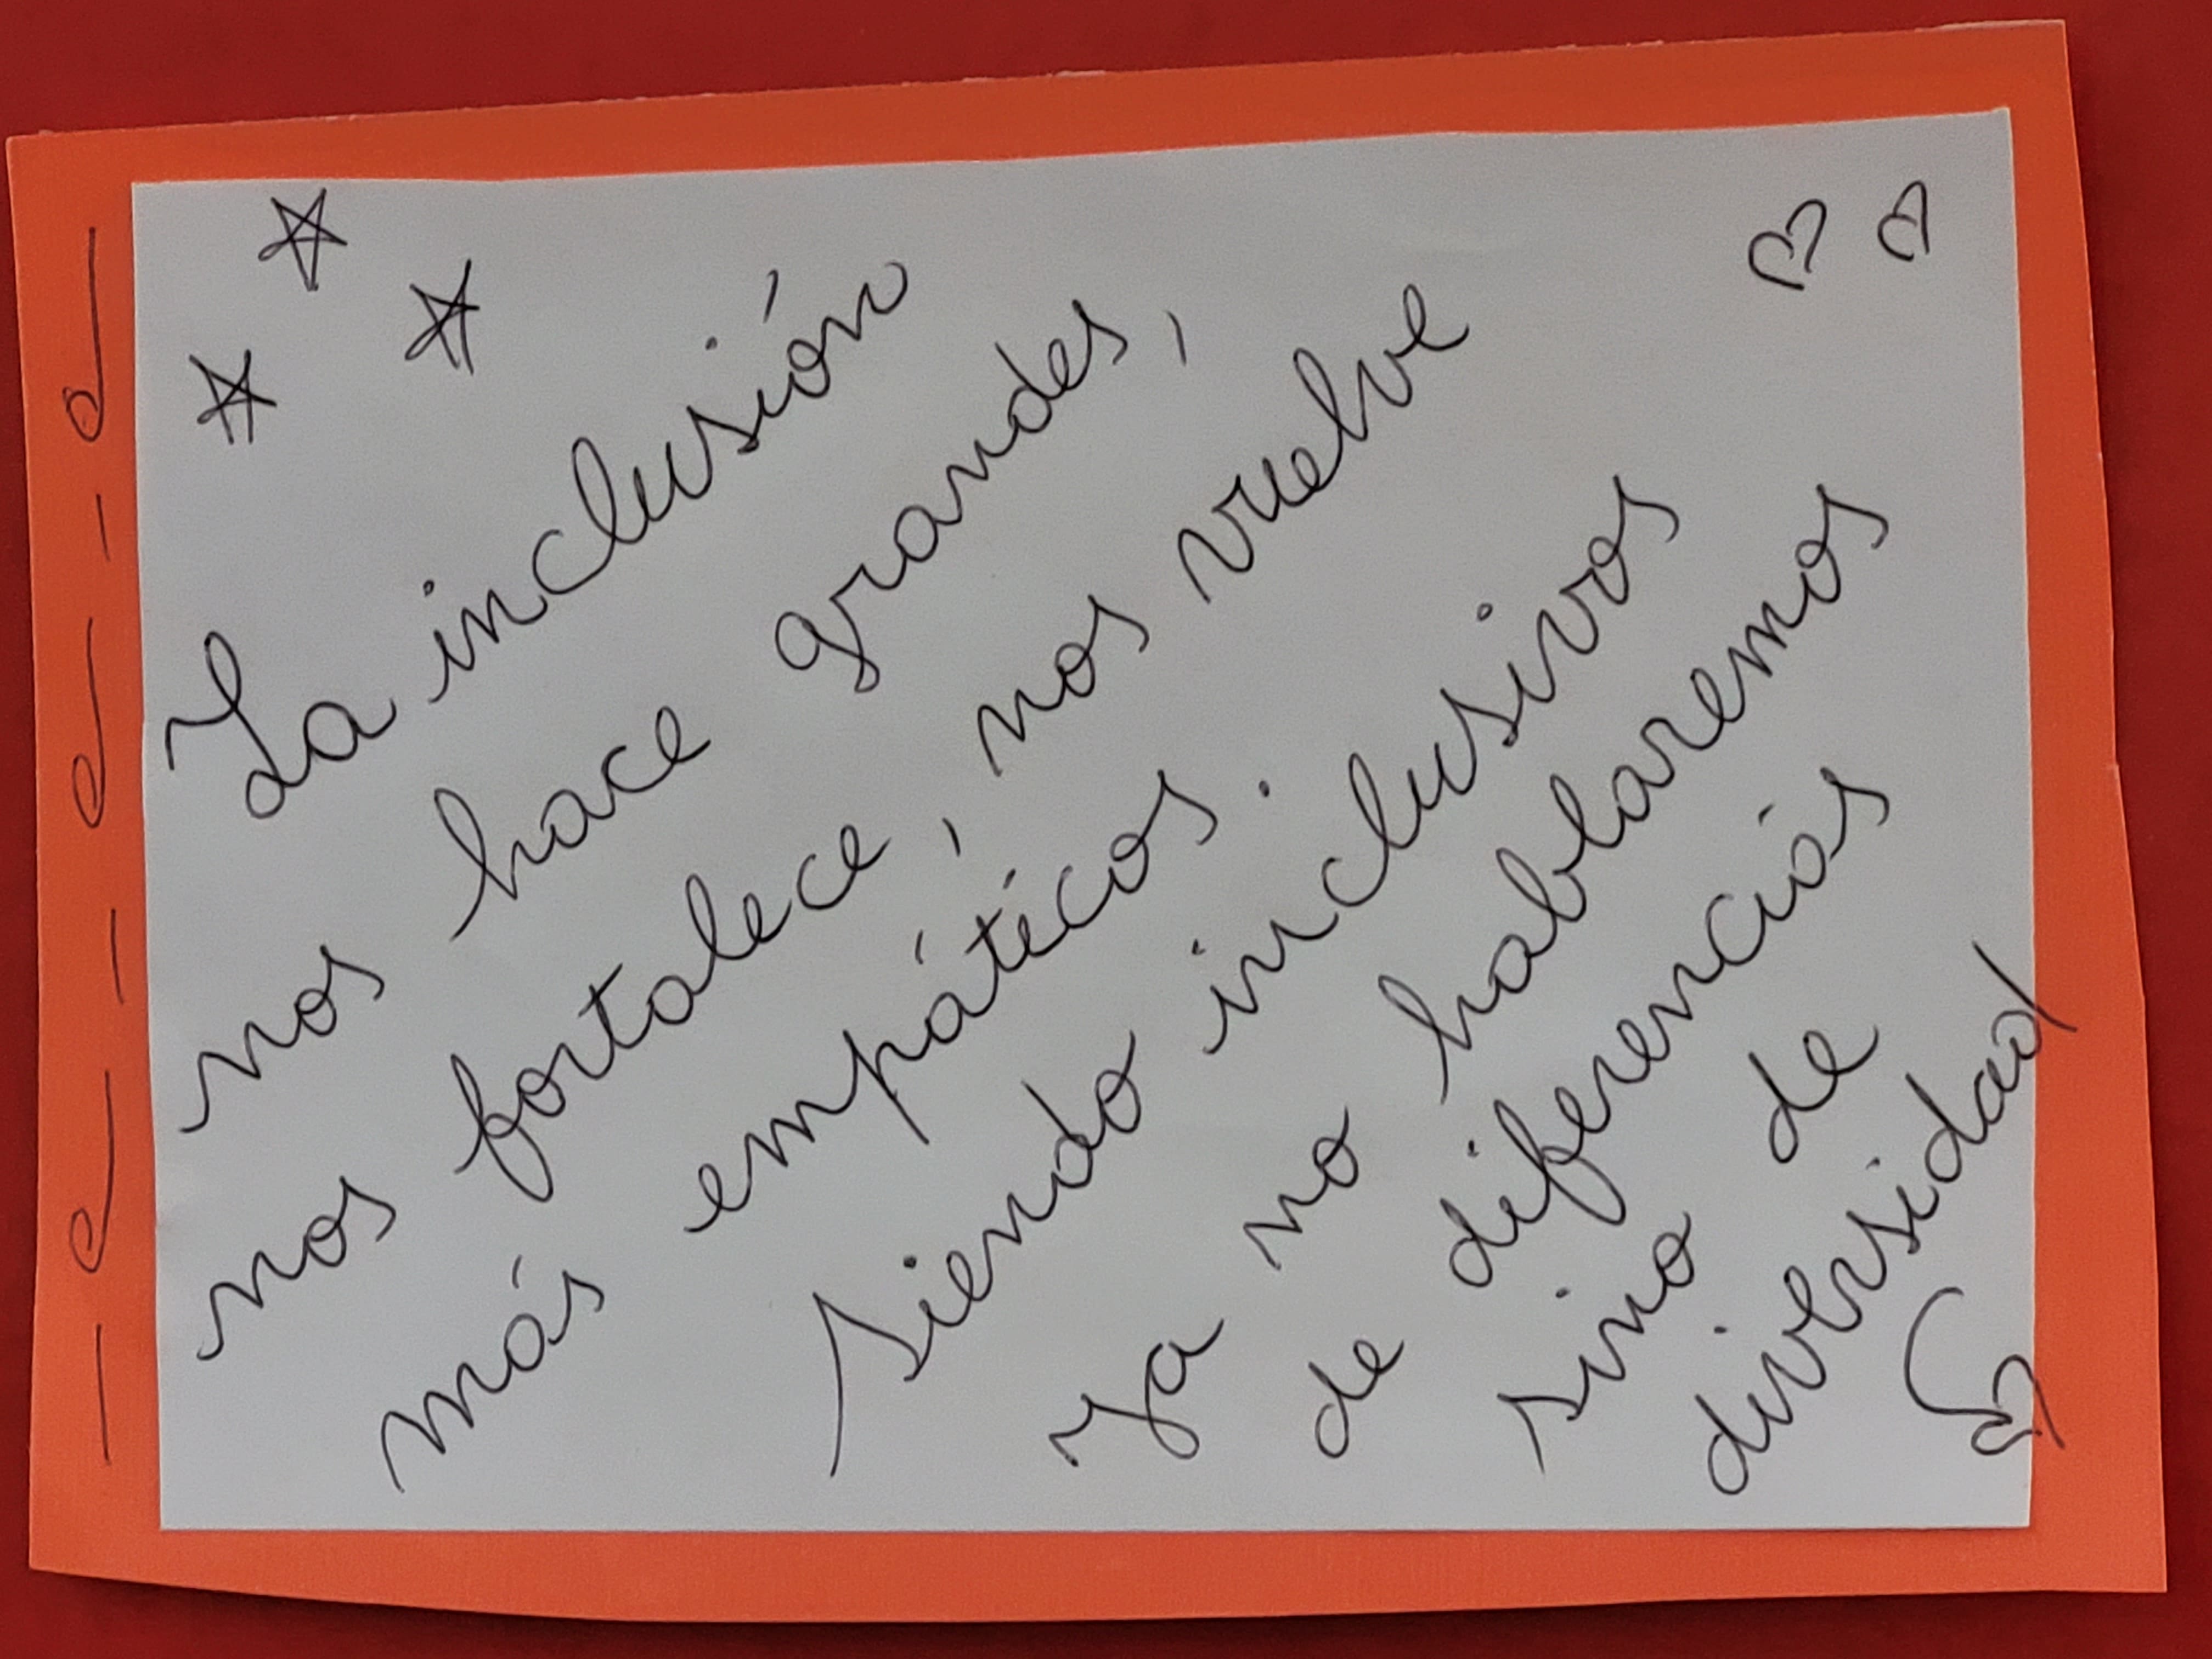 La inclusión
nos hace grandes,
nos fortalece, nos vuelve
más empáticos.
Siendo inclusivos
ya no hablaremos
de diferencias
sino de
diversidad